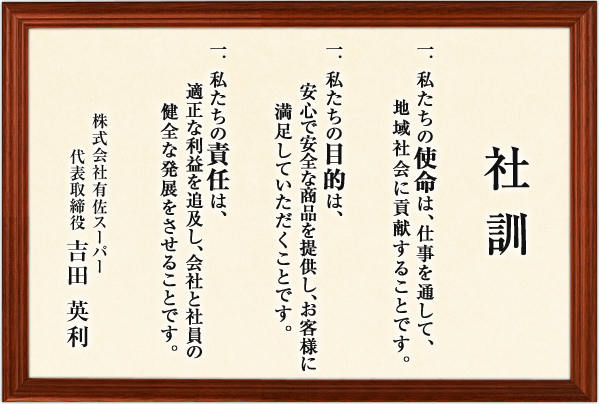 社訓
一．私たちの使命は、仕事を通して、
地域社会に貢献することです。
一．私たちの目的は、
安心で安全な商品を提供し、お客様に
満足していただくことです。
一．私たちの責任は、
適正な利益を追及し、会社と社員の
健全な発展をさせることです。
株式会社有佐スーパー
代表取締役 吉田 英利